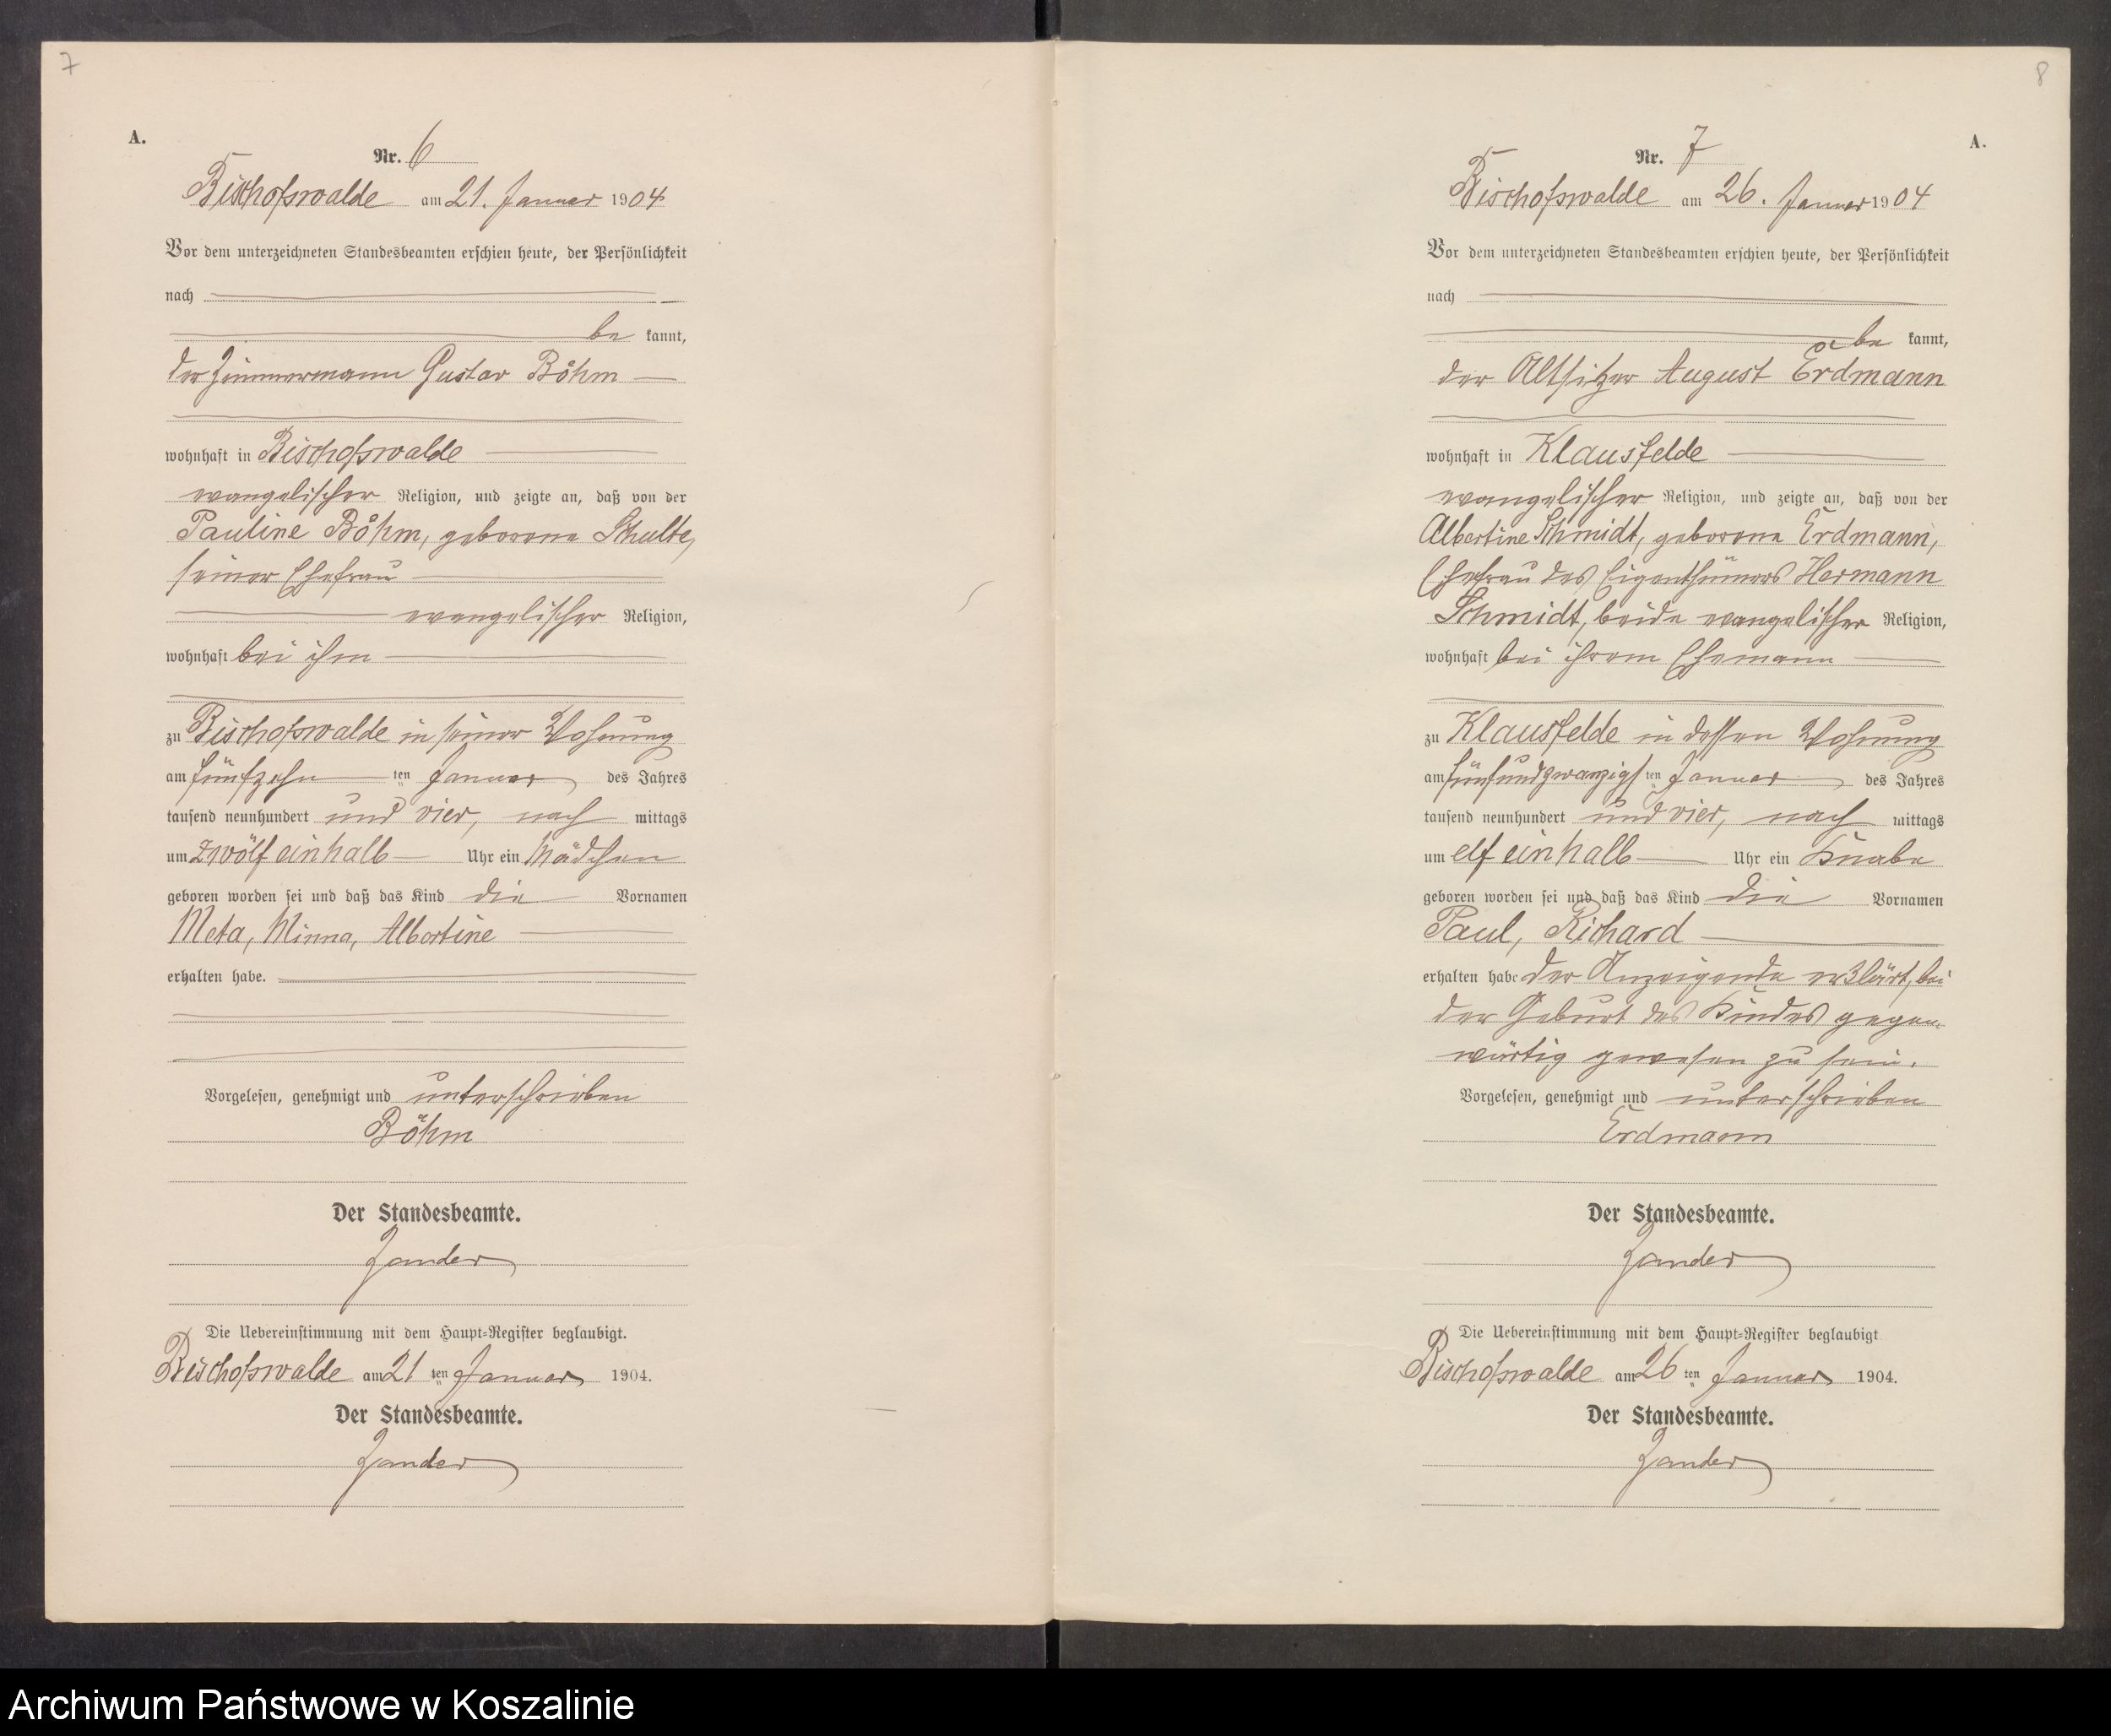 7
A.
Nr. 6
Bischofswalde am 21. Januar 1904
Vor dem unterzeichneten Standesbeamten erschien heute, der Persönlichkeit
nach
be kannt,
der Zimmermann Gustav Böhm
wohnhaft in Bischofswalde
evangelischer Religion, und zeigte an, daß von der
Pauline Böhm, geborene Schulte,
seiner Ehefrau
evangelischer Religion,
wohnhaft bei ihm
zu Bischofswalde in seiner Wohnung
am fünfzehn ten Januar des Jahres
tausend neunhundert und vier, nach mittags
um zwölf einhalb Uhr ein Mädchen
geboren worden sei und daß das Kind die Vornamen
Meta, Minna, Albertine
erhalten habe.
Vorgelesen, genehmigt und unterschrieben
Böhm
Der Standesbeamte.
Zander
Die Uebereinstimmung mit dem Haupt-Register beglaubigt.
Bischofswalde am 21 ten Januar 1904.
Der Standesbeamte.
Zander
8
A.
Nr. 7
Bischofswalde am 26. Januar 1904
Vor dem unterzeichneten Standesbeamten erschien heute, der Persönlichkeit
nach
be kannt,
der Altsitzer August Erdmann
wohnhaft in Klausfelde
evangelischer Religion, und zeigte an, daß von der
Albertine Schmidt, geborene Erdmann,
Ehefrau des Eigenthümers Hermann
Schmidt, beide evangelischer Religion,
wohnhaft bei ihrem Ehemann
zu Klausfelde in dessen Wohnung
am fünfundzwanzigs ten Januar des Jahres
tausend neunhundert und vier, nach mittags
um elf einhalb Uhr ein Knabe
geboren worden sei und daß das Kind die Vornamen
Paul, Richard
erhalten habe der Anzeigende erklärt, bei
der Geburt des Kindes gegen-
wärtig gewesen zu sein.
Vorgelesen, genehmigt und unterschrieben
Erdmann
Der Standesbeamte.
Zander
Die Uebereinstimmung mit dem Haupt-Register beglaubigt
Bischofswalde am 26 ten Januar 1904.
Der Standesbeamte.
Zander
Archiwum Państwowe w Koszalinie